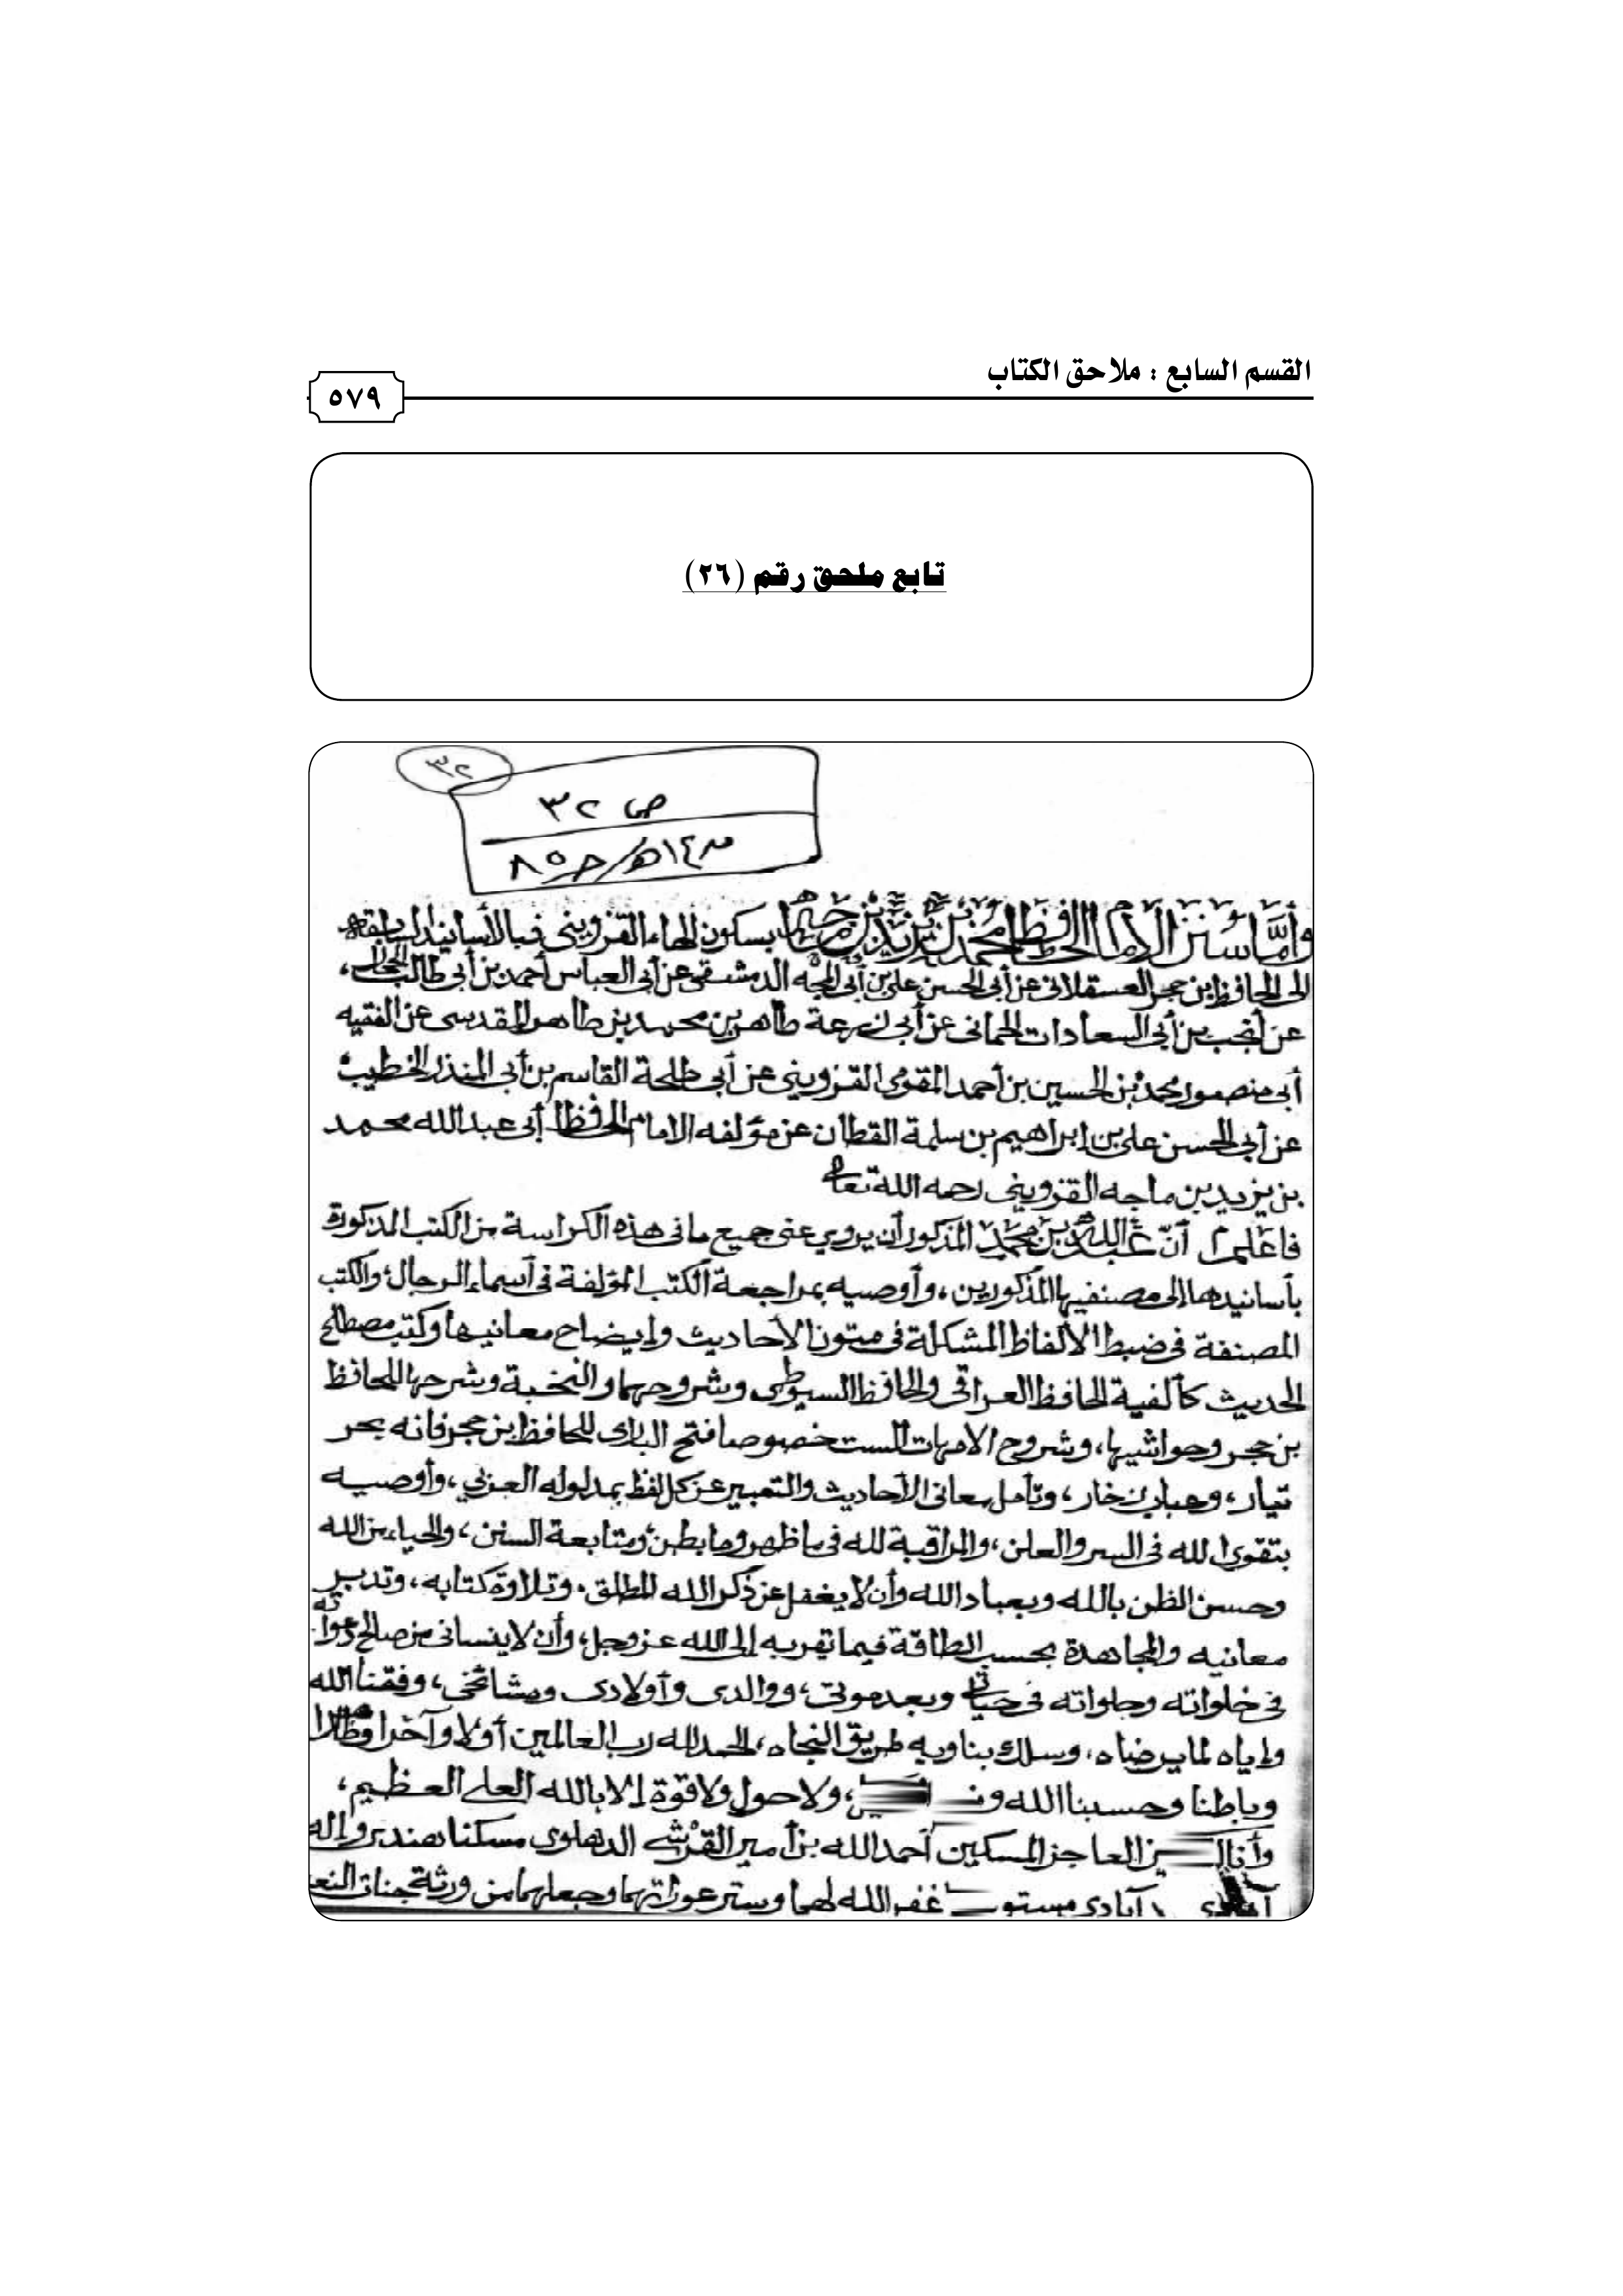 القسم السابع : ملاحق الكتاب
٥٧٩
تابع ملحق رقم (٢٦)
٣٢
ص ٣٢
وأما سنن الإمام الحافظ محمد بن يزيد بن ماجه بسكون الهاء القزويني فبالأسانيد السابقة
إلى الحافظ ابن حجر العسقلاني عن أبي الحسن علي بن أبي المجد الدمشقي عن أبي العباس أحمد بن أبي طالب الحجار،
عن أنجب بن أبي السعادات الحمامي عن أبي زرعة طاهر بن محمد بن طاهر المقدسي عن الفقيه
أبي منصور محمد بن الحسين بن أحمد المقومي القزويني عن أبي طلحة القاسم بن أبي المنذر الخطيب
عن أبي الحسن علي بن إبراهيم بن سلمة القطان عن مؤلفه الامام الحافظ أبي عبد الله محمد
بن يزيد بن ماجه القزويني رحمه الله تعالى
فاعلم أنّ عبدالله بن محمد المذكور أن يروي عنى جميع ما فى هذه الكراسة من الكتب المذكورة
بأسانيدها إلى مصنفيها المذكورين، وأوصيه بمراجعة الكتب المؤلفة فى أسماء الرجال، والكتب
المصنفة فى ضبط الألفاظ المشكلة فى متون الأحاديث وإيضاح معانيها وكتب مصطلح
الحديث كألفية الحافظ العراقى والحافظ السيوطي وشروحهما والنخبة وشرحها للحافظ
بن حجر وحواشيها، وشروح الامهات الست خصوصا فتح البارى للحافظ ابن حجر فانه بحر
تيار، وعباب زخار، وتأمل معانى الأحاديث والتعبير عن كل لفظ بمدلوله العربي، وأوصيه
بتقوى الله فى السر والعلن، والمراقبة لله فى ما ظهر وما بطن، ومتابعة السنن، والحياء من الله
وحسن الظن بالله وبعباد الله وأن لا يغفل عن ذكر الله المطلق. وتلاوة كتابه، وتدبر
معانيه والمجاهدة بحسب الطاقة فيما تقربه إلى الله عز وجل، وأن لا ينسانى من صالح دعواته
فى خلواته وجلواته فى حياتي وبعد موتى، ووالدى وأولادى ومشائخى، وفقنا الله
وإياه لما يرضاه، وسلك بنا وبه طريق النجاه، الحمد لله رب العالمين أولا وآخرا وظاهرا
وباطنا وحسبنا الله و ، ولا حول ولا قوة إلا بالله العلي العظيم،
وأنا العاجز المسكين أحمد الله بن أمير القرشي الدهلوي مسكنا
آبادى غفر الله لهما وستر عوراتهما وجعلهما من ورثة جنات النعيم